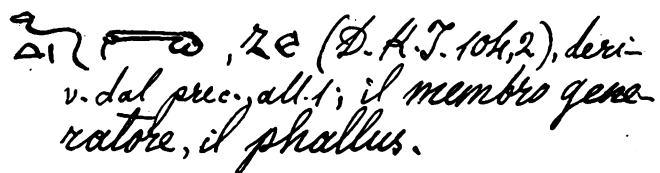 , (D.H.T. 104,2), deri-
v. dal prec., all. 1; il membro gene-
ratore, il phallus.